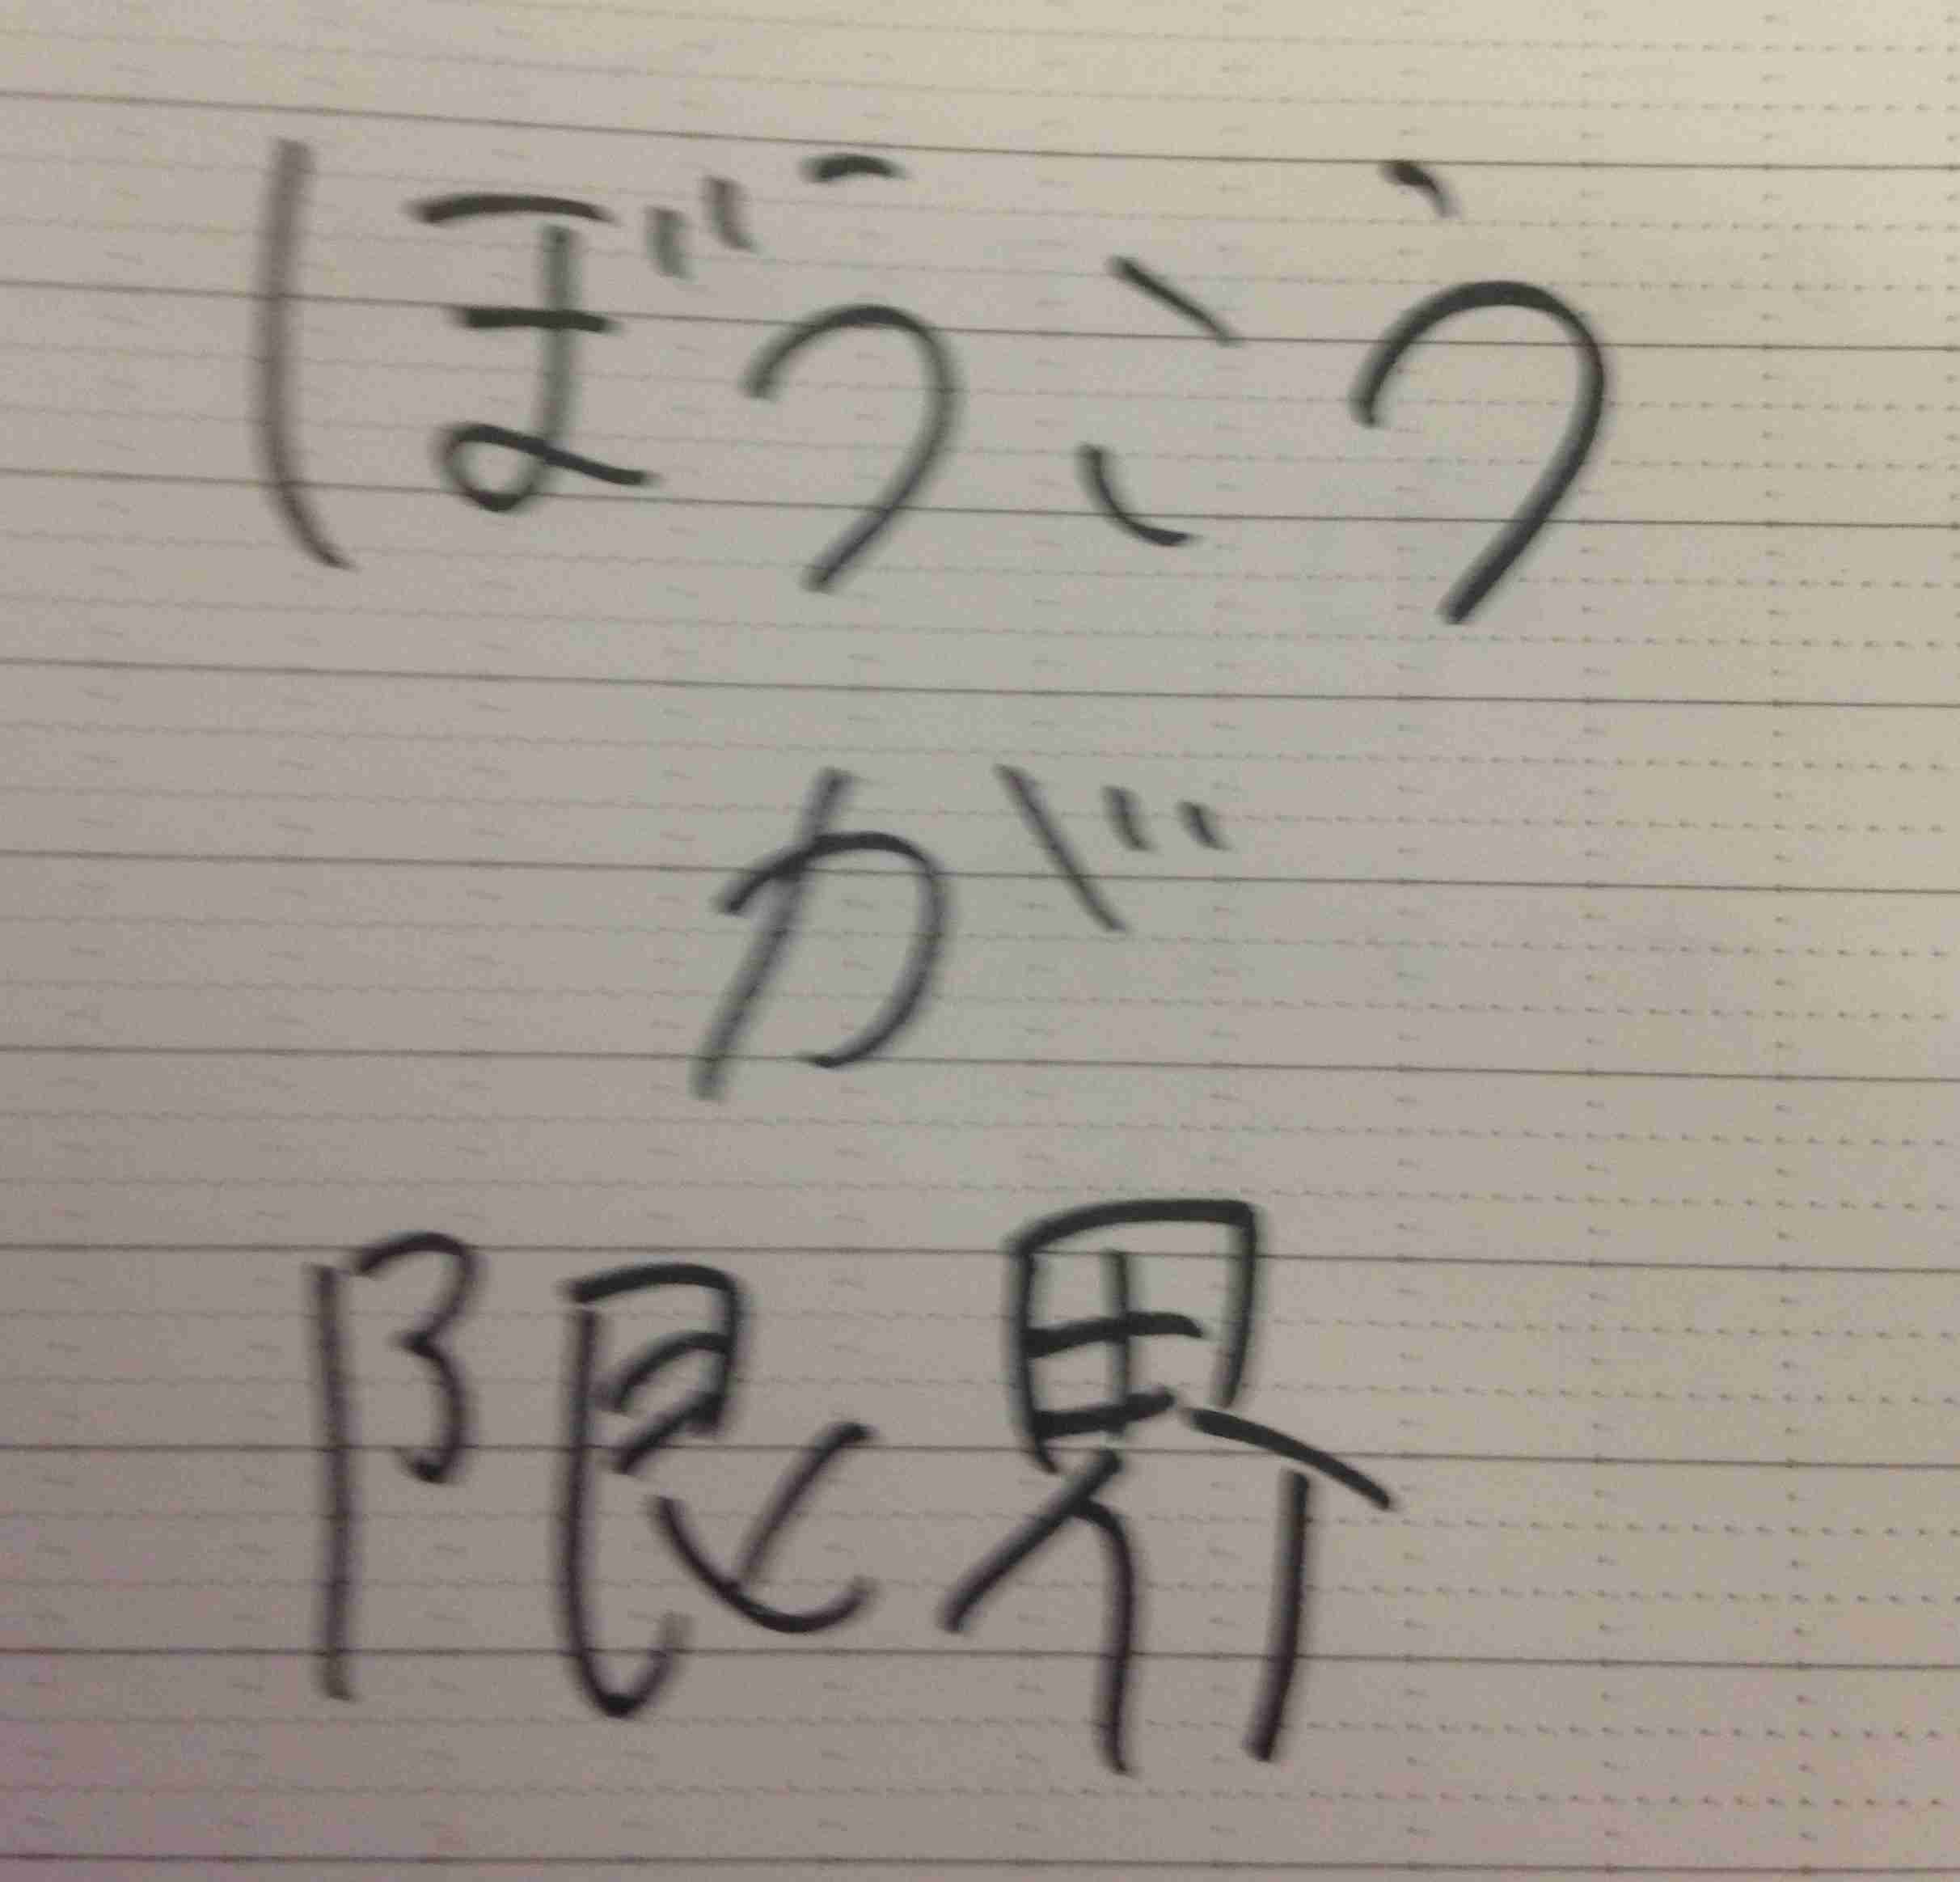 ぼうこう
が
限界